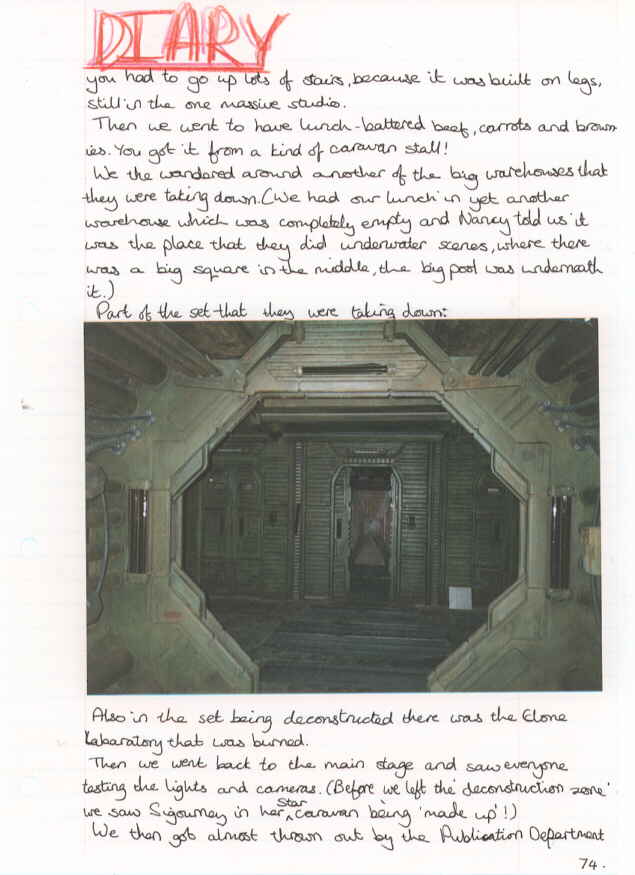 DIARY
you had to go up lots of stairs, because it was built on legs,
still in the one massive studio.
Then we went to have lunch - battered beef, carrots and brown
ies. You got it from a kind of caravan stall!
We the wandered around another of the big warehouses that
they were taking down. (We had our lunch in yet another
warehouse which was completely empty and Nancy told us it
was the place that they did underwater scenes, where there
was a big square in the middle, the big pool was underneath
it.)
Part of the set that they were taking down:
Also in the set being deconstructed there was the Clone
Labaratory that was burned.
Then we went back to the main stage and saw everyone
testing the lights and cameras. (Before we left the 'deconstruction zone'
we saw Sigourney in her Star caravan being 'made up'!)
We then got almost thrown out by the Publication Department
74.